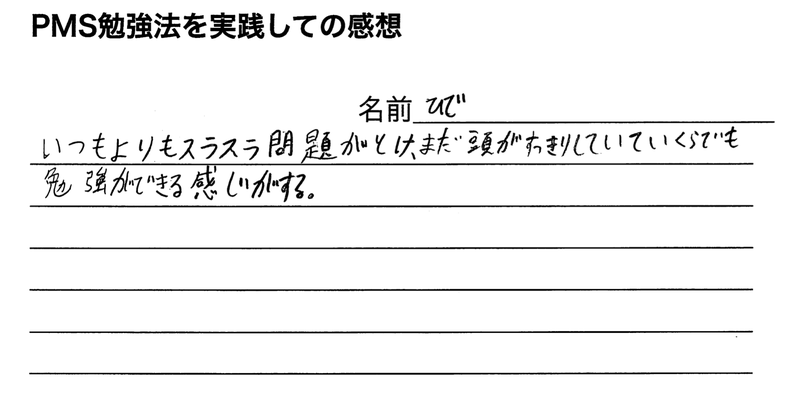 PMS勉強法を実践しての感想
名前 ひで
いつもよりもスラスラ問題がとけ、まだ頭がすっきりしていていくらでも
勉強ができる感じがする。